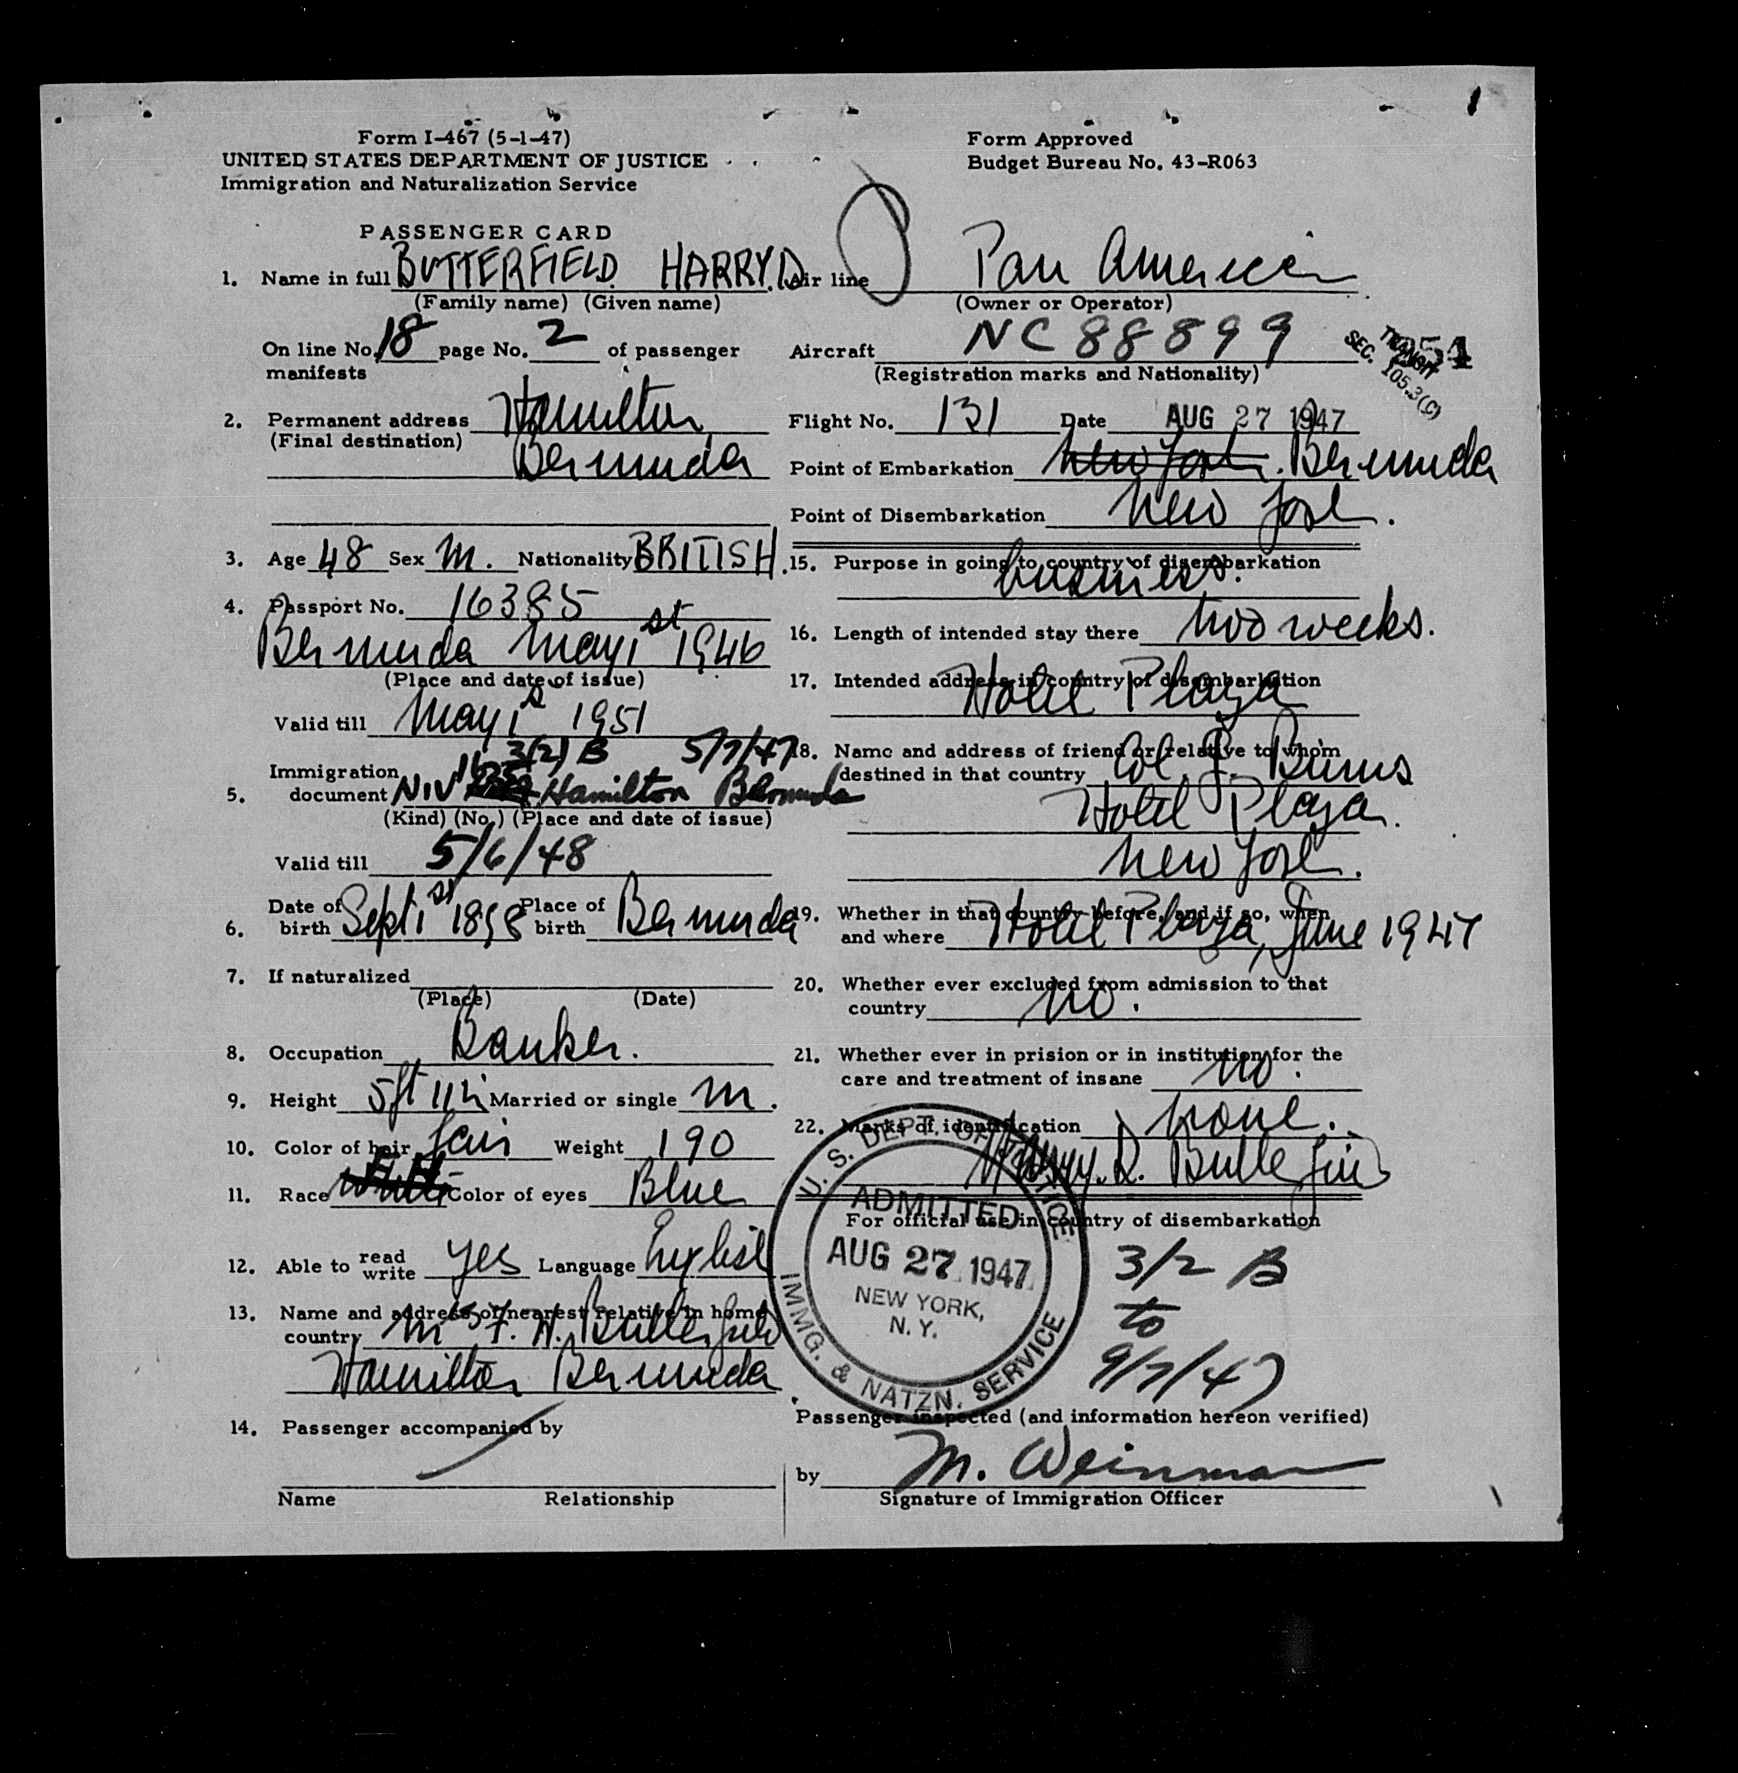 Form I-467 (5-1-47)
UNITED STATES DEPARTMENT OF JUSTICE
Immigration and Naturalization Service
Form Approved
Budget Bureau No. 43-R063
PASSENGER CARD
1. Name in full BUTTERFIELD. HARRY.D.
(Family name) (Given name)
On line No. 18 page No. 2 of passenger
manifests
2. Permanent address Hamilton
(Final destination) Bermuda
3. Age 48 Sex M. Nationality BRITISH.
4. Passport No. 16385
Bermuda May 1st 1946
(Place and date of issue)
Valid till May 1st 1951
3(2) B 5/7/47
Immigration
5. document NIV Hamilton Bermuda
(Kind) (No.) (Place and date of issue)
Valid till 5/6/48
Date of Place of
6. birth Sept 1st 1898 birth Bermuda
7. If naturalized
(Place) (Date)
8. Occupation Banker.
9. Height 5ft 11in Married or single M.
10. Color of hair fair Weight 190
11. Race White Color of eyes Blue
12. Able to read write yes Language English
13. Name and address of nearest relative in home
country Mrs F. H. Butterfield
Hamilton Bermuda
14. Passenger accompanied by
Name Relationship
Air line Pan American
(Owner or Operator)
Aircraft NC 88899
(Registration marks and Nationality)
TRANSIT
SEC. 105.3(C)
Flight No. 131 Date AUG 27 1947
Point of Embarkation New York. Bermuda
Point of Disembarkation New York.
15. Purpose in going to country of disembarkation
business.
16. Length of intended stay there two weeks.
17. Intended address in country of disembarkation
Hotel Plaza
18. Name and address of friend or relative to whom
destined in that country Col. J. Burns
Hotel Plaza.
New York.
19. Whether in that country before, and if so, when
and where Hotel Plaza, June 1947
20. Whether ever excluded from admission to that
country no.
21. Whether ever in prision or in institution for the
care and treatment of insane no.
22. Marks of identification none.
Harry. D. Butterfield
For official use in country of disembarkation
U. S. DEPT. OF JUSTICE
ADMITTED
AUG 27 1947
NEW YORK,
N. Y.
IMMG. & NATZN. SERVICE
3/2 B
to
9/7/47
Passenger inspected (and information hereon verified)
by M. Weinman
Signature of Immigration Officer